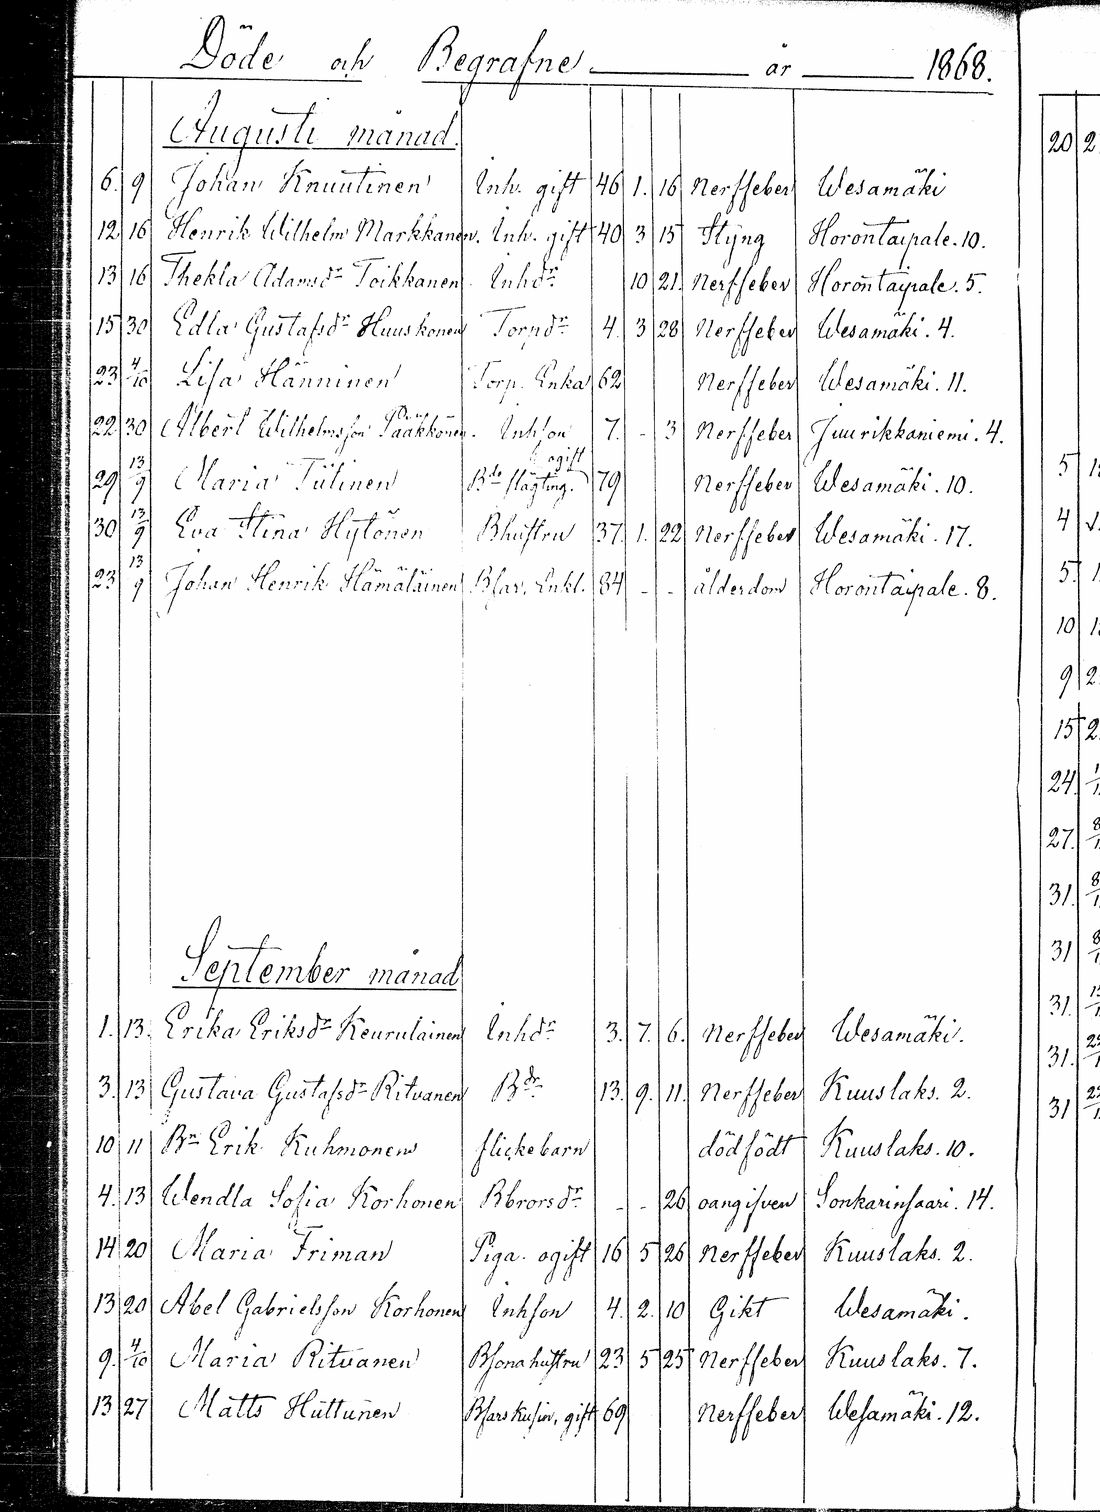 Döde och Begrafne år 1868.
Augusti månad.
6. 9 Johan Knuutinen Inh. gift 46 1. 16 Nerffeber Wesamäki
12 16 Henrik Wilhelm Markkanen. Inh. gift 40 3 15 Styng Horontaipale. 10.
13 16 Thekla Adamsdr Toikkanen Inhdr 10 21. Nerffeber Horontaipale. 5.
15 30 Edla Gustafsdr Huuskonen Torpdr 4. 3 28 Nerffeber Wesamäki. 4.
23 4/10 Lisa Hänninen Torp. Enka 62 Nerffeber Wesamäki. 11.
22 30 Albert Wilhelmsson Pääkkönen. Inhson 7. - 3 Nerffeber Juurikkaniemi. 4.
29 13/9 Maria Tiitinen Bde slägting. ogift 79 Nerffeber Wesamäki. 10.
30 13/9 Eva Stina Hytönen Bhustru 37. 1. 22 Nerffeber Wesamäki. 17.
23 13/9 Johan Henrik Hämäläinen Bfar. Enkl. 84 - - ålderdom Horontaipale. 8.
September månad
1. 13. Erika Eriksdr Keurulainen Inhdr 3. 7. 6. Nerffeber Wesamäki.
3. 13 Gustava Gustafsdr Ritvanen Bdr 13. 9. 11. Nerffeber Kuuslaks. 2.
10 11 Bn Erik Kuhmonen flickebarn dödfödt Kuuslaks. 10.
4. 13 Wendla Sofia Korhonen Bbrorsdr - - 26 oangifven Sonkarinsaari. 14.
14 20 Maria Friman Piga. ogift 16 5 26 Nerffeber Kuuslaks. 2.
13 20 Abel Gabrielsson Korhonen Inhson 4. 2. 10 Gikt Wesamäki.
9. 4/10 Maria Ritvanen Bsonahustru 23 5 25 Nerffeber Kuuslaks. 7.
13 27 Matts Huttunen Bfars kusin, gift 69 Nerffeber Wesamäki. 12.
20 2
5 1
4
5. 1
10 1
9 2
15 2
24
27. 8
31. 8
31 8
31. 15
31. 22
31 22